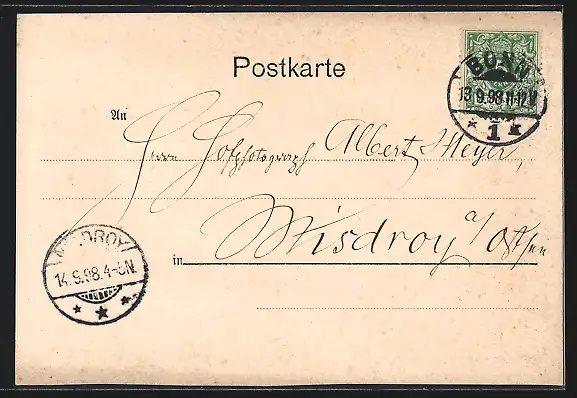 Postkarte
BONN
13.9.98.11-12V
* 1 *
An
Herrn Hofphotograph Albert Meyer,
Misdroy a/Ostsee
in
MISDROY
14.9.98.4-5N.